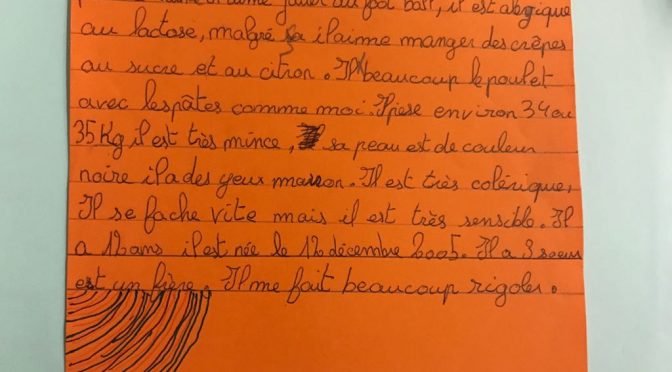 jouer au foot ball, il est alergique
au lactose, malgré sa il aime manger des crêpes
au sucre et au citron. Il beaucoup le poulet
avec les pâtes comme moi. Il pèse environ 34 ou
35 Kg il est très mince, sa peau est de couleur
noire il a des yeux marron. Il est très colérique,
Il se fache vite mais il est très sensible. Il
a 12 ans il est née le 12 décembre 2005. Il a 3 soeurs
est un frère. Il me fait beaucoup rigoler.